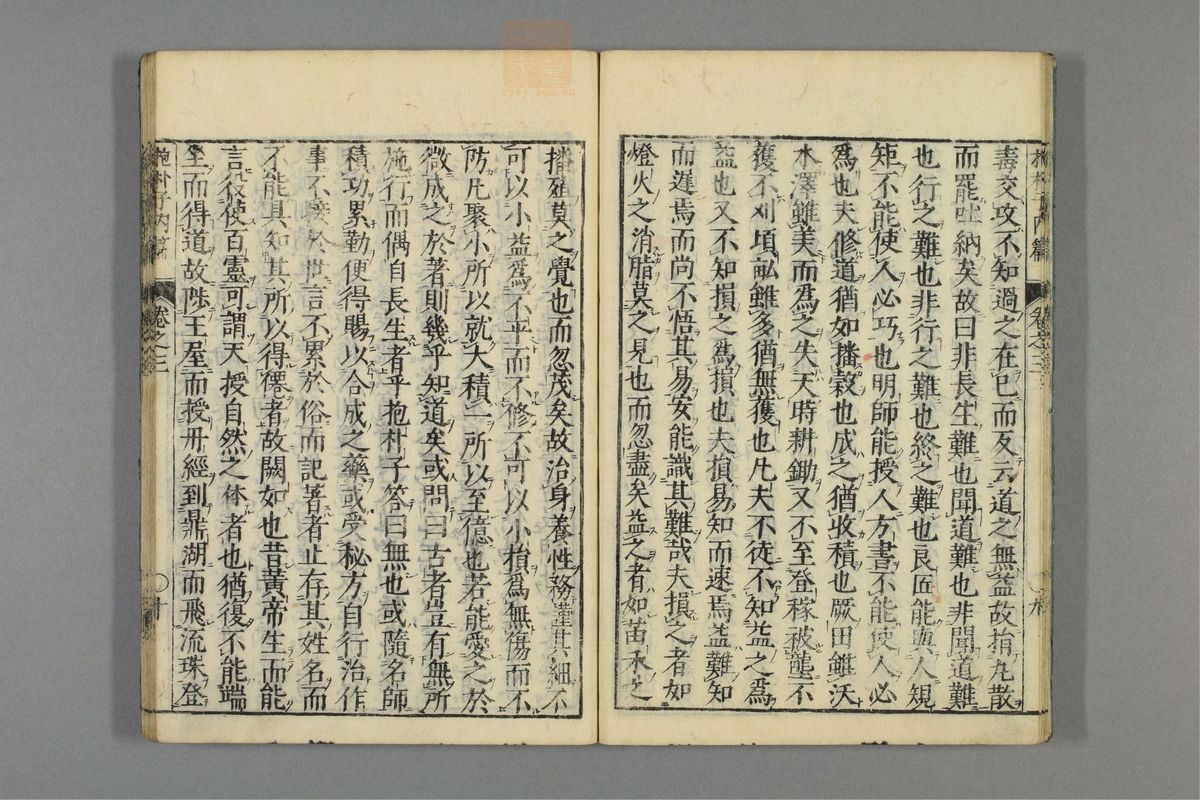 抱朴子内篇 卷之三 九
毒交攻不知過之在已而反云道之無益故捐丸散
而罷吐納矣故曰非長生難也聞道難也非聞道難
也行之難也非行之難也終之難也良匠能與人規
矩不能使人必巧也明師能授人方書不能使人必
爲也夫修道猶如播穀也成之猶收積也厥田雖沃
水澤雖美而爲之失天時耕鋤又不至登稼被壟不
獲不刈頃畝雖多猶無獲也凡夫不徒不知益之爲
益也又不知損之爲損也夫損易知而速焉益難知
而遲焉而尚不悟其易安能識其難哉夫損之者如
燈火之消脂莫之見也而忽盡矣益之者如苗禾之
播殖莫之覺也而忽茂矣故治身養性務謹其細不
可以小益爲不平而不修不可以小損爲無傷而不
防凡聚小所以就大積一所以至億也若能愛之於
微成之於著則幾乎知道矣或問曰古者豈有無所
施行而偶自長生者乎抱朴子答曰無也或隨名師
積功累勤便得賜以合成之藥或受秘方自行治作
事不接於世言不累於俗而記著者止存其姓名而
不能具知其所以得僊者故闕如也昔黃帝生而能
言役使百靈可謂天授自然之体者也猶復不能端
坐而得道故陟王屋而授丹經到鼎湖而飛流珠登
抱朴子内篇 卷之三 十